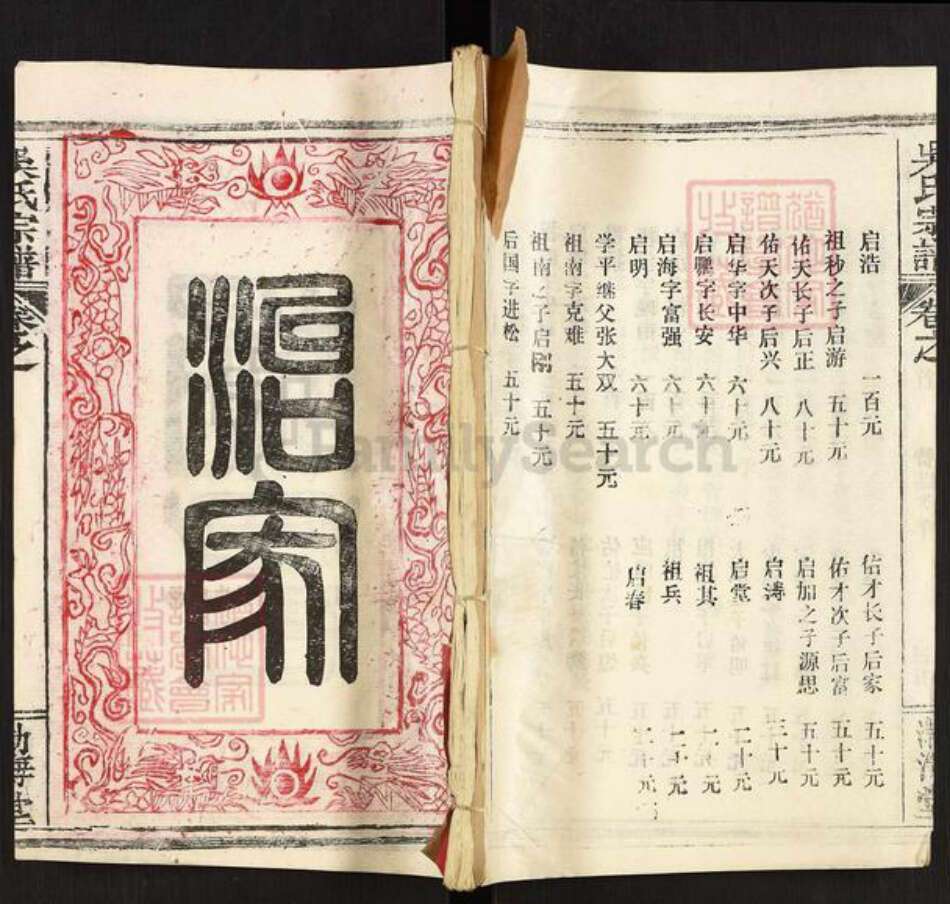 吴氏宗谱
启浩 一百元
祖秒之子启游 五十元
佑天长子后正 八十元
佑天次子后兴 八十元
启华字中华 六十元
启鹏字长安 六十元
启海字富强 六十元
启明 六十元
学平继父张大双 五十元
祖南字克难 五十元
祖南之子启刚 五十元
后国字进松 五十元
佑才长子后家 五十元
佑才次子后富 五十元
启加之子源思 五十元
启涛 三十元
启堂 二十元
祖其 二十元
祖兵 二十元
启春 二十元
治家
吴氏宗谱
卷之
FamilySearch